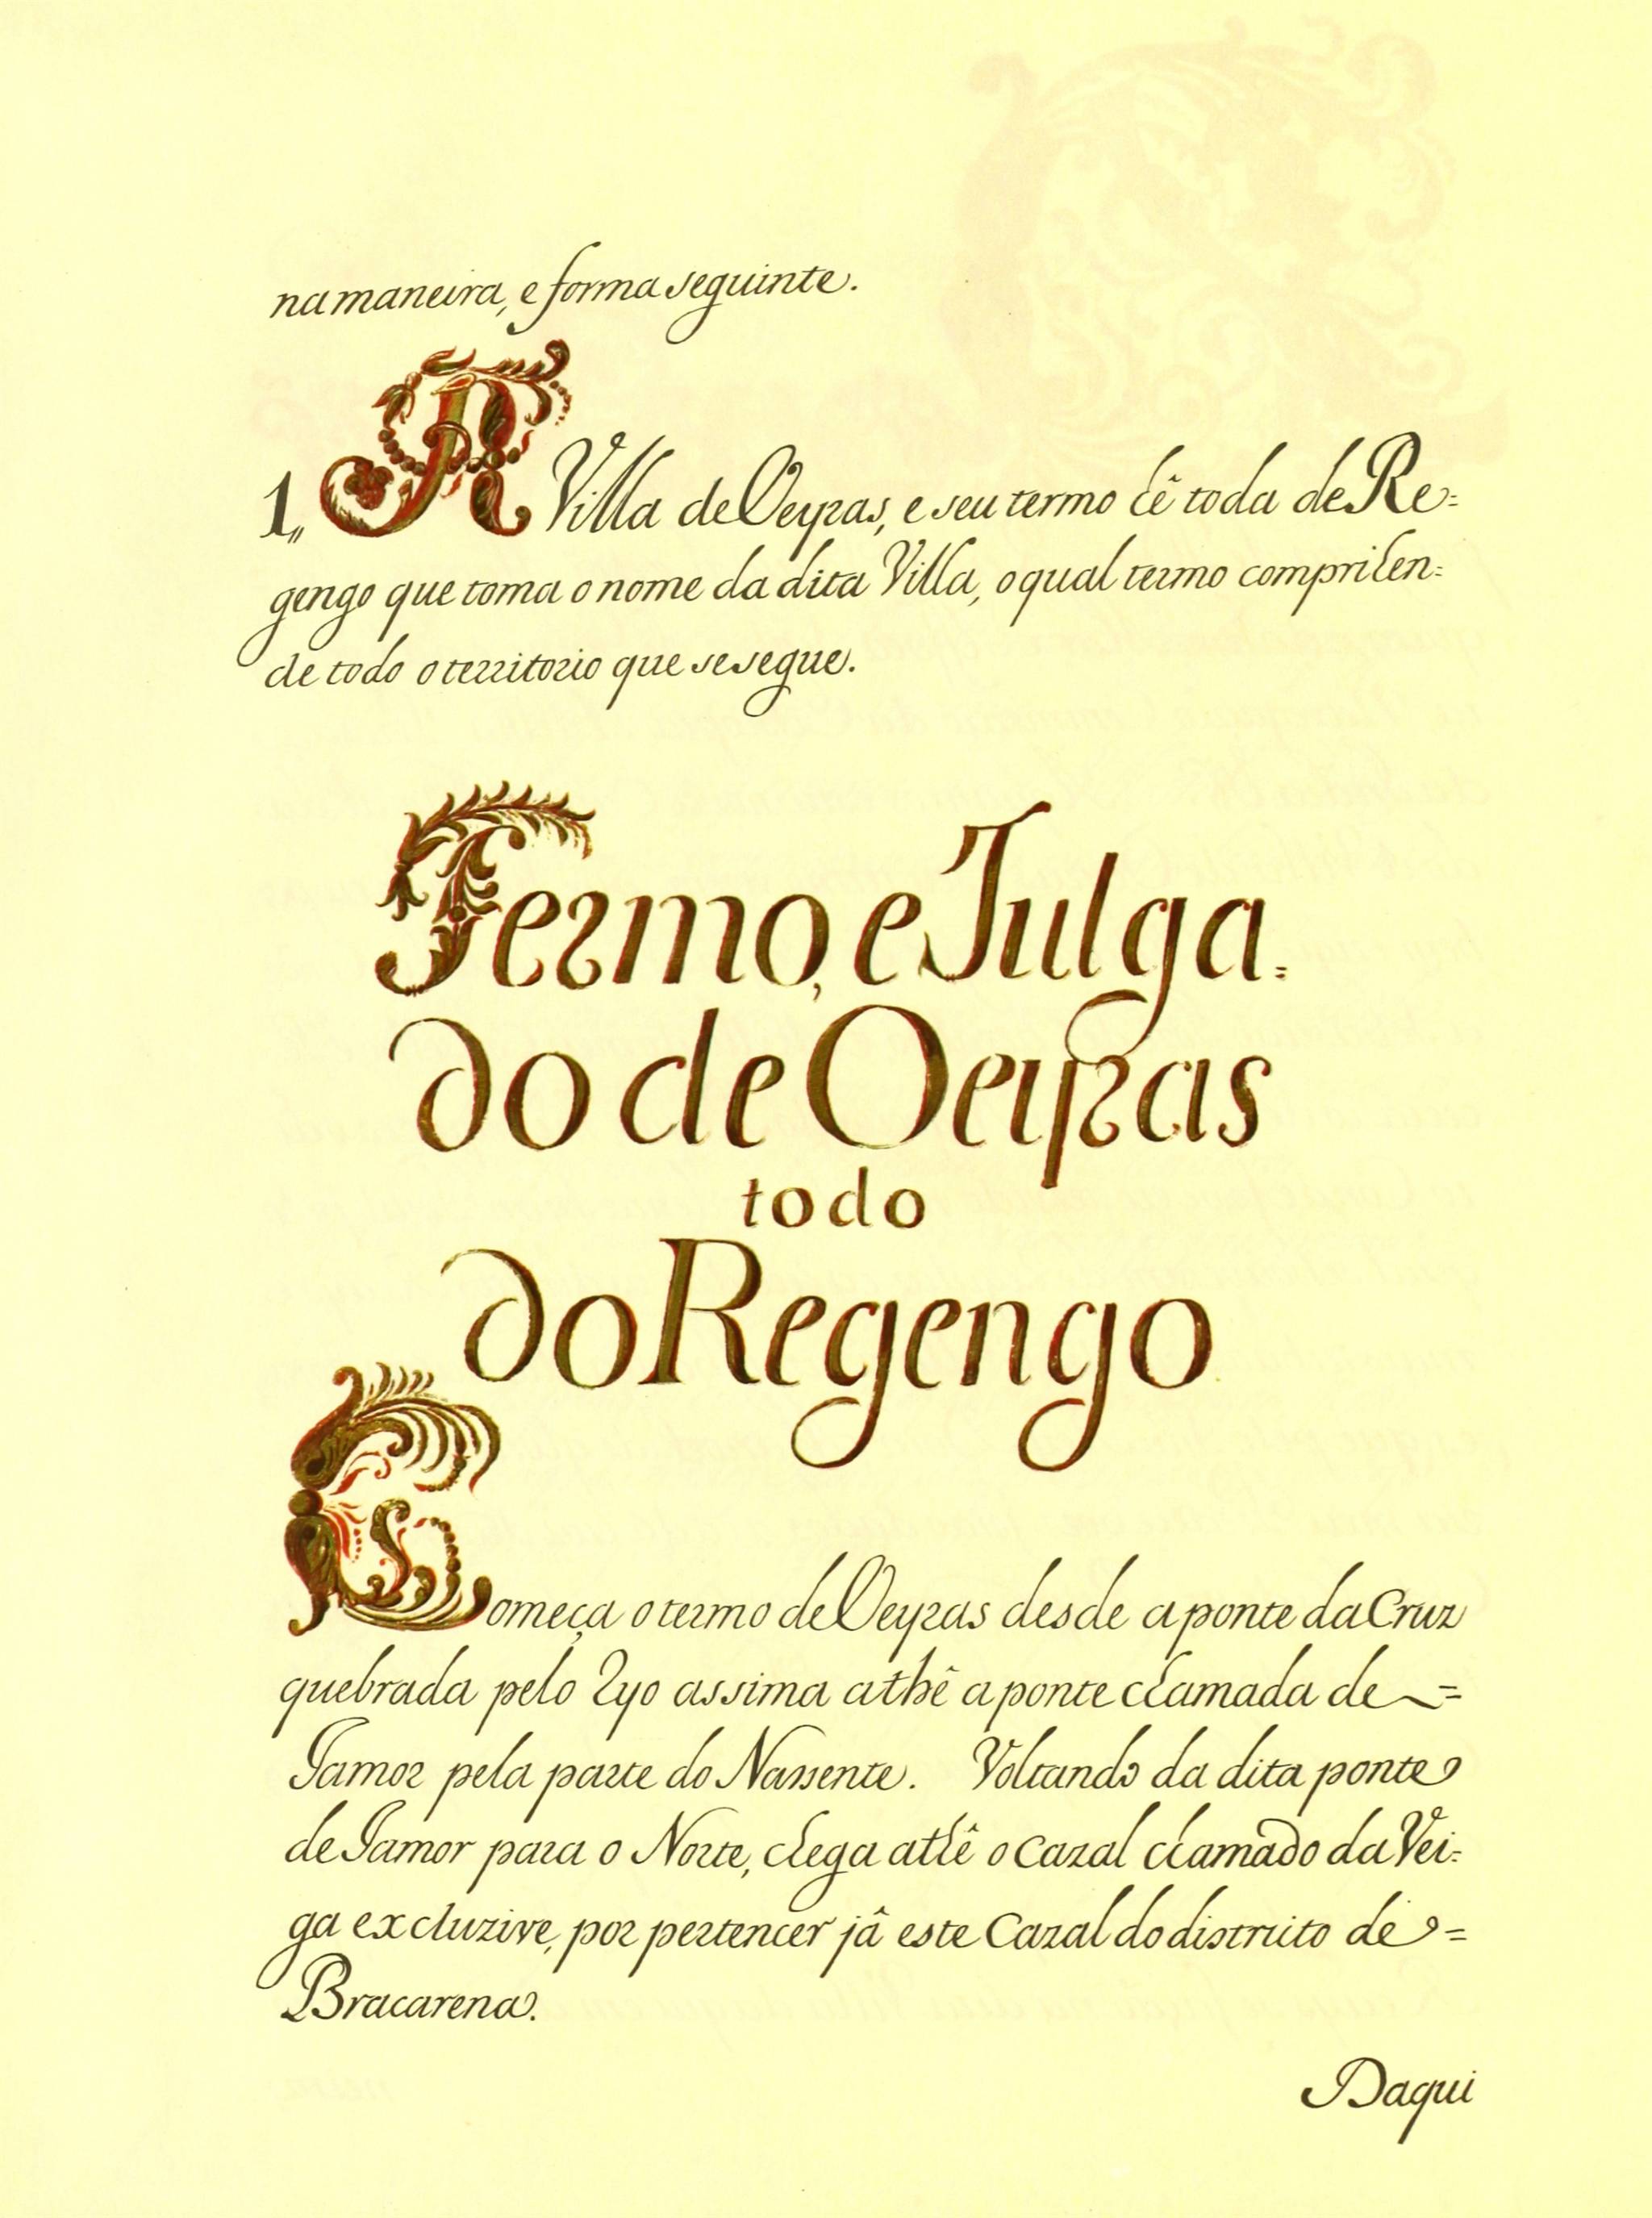 na maneira, e forma seguinte.
1,, A Villa de Oeyras, e seu termo hê toda de Re=
gengo que toma o nome da dita Villa, o qual termo comprihen=
de todo o territorio que se segue.
Termo, e Julga=
do de Oeyras
todo
do Regengo
Começa o termo de Oeyras desde a ponte da Cruz
quebrada pelo Ryo assima athê a ponte chamada de =
Jamor pela parte do Nassente. Voltando da dita ponte
de Jamor para o Norte, chega athê o cazal chamado da Vei=
ga excluzive, por pertencer jâ este Cazal do distrito de =
Bracarena.
Daqui